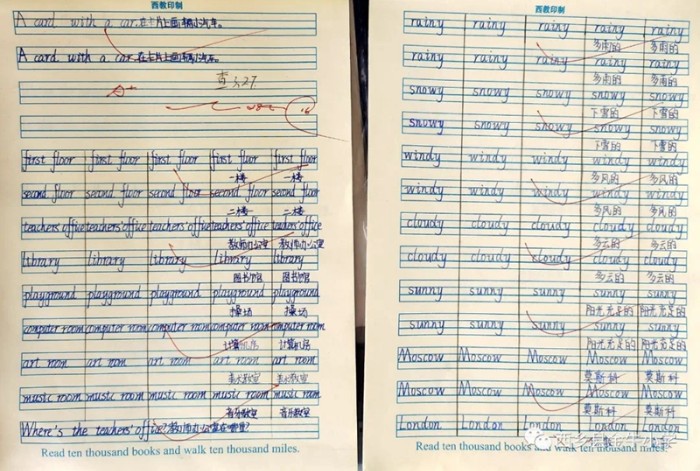 西教印制
A card with a car.在卡片上画辆小汽车。
A card with a car.在卡片上画辆小汽车。
A+ 查 3.27.
first floor first floor first floor first floor first floor
一楼 一楼
second floor second floor second floor second floor second floor
二楼 二楼
teachers' office teachers' office teachers' office teachers' office teachers' office
教师办公室 教师办公室
library library library library library
图书馆 图书馆
playground playground playground playground playground
操场 操场
computer room computer room computer room computer room computer room
计算机房 计算机房
art room art room art room art room art room
美术教室 美术教室
music room music room music room music room music room
音乐教室 音乐教室
Where's the teachers' office?教师办公室在哪里?
Read ten thousand books and walk ten thousand miles.
西教印制
rainy rainy rainy rainy rainy
多雨的 多雨的
rainy rainy rainy rainy rainy
多雨的 多雨的
snowy snowy snowy snowy snowy
下雪的 下雪的
snowy snowy snowy snowy snowy
下雪的 下雪的
windy windy windy windy windy
多风的 多风的
windy windy windy windy windy
多风的 多风的
cloudy cloudy cloudy cloudy cloudy
多云的 多云的
cloudy cloudy cloudy cloudy cloudy
多云的 多云的
sunny sunny sunny sunny sunny
阳光充足的 阳光充足的
sunny sunny sunny sunny sunny
阳光充足的 阳光充足的
Moscow Moscow Moscow Moscow Moscow
莫斯科 莫斯科
Moscow Moscow Moscow Moscow Moscow
莫斯科 莫斯科
London London London London London
Read ten thousand books and walk ten thousand miles.